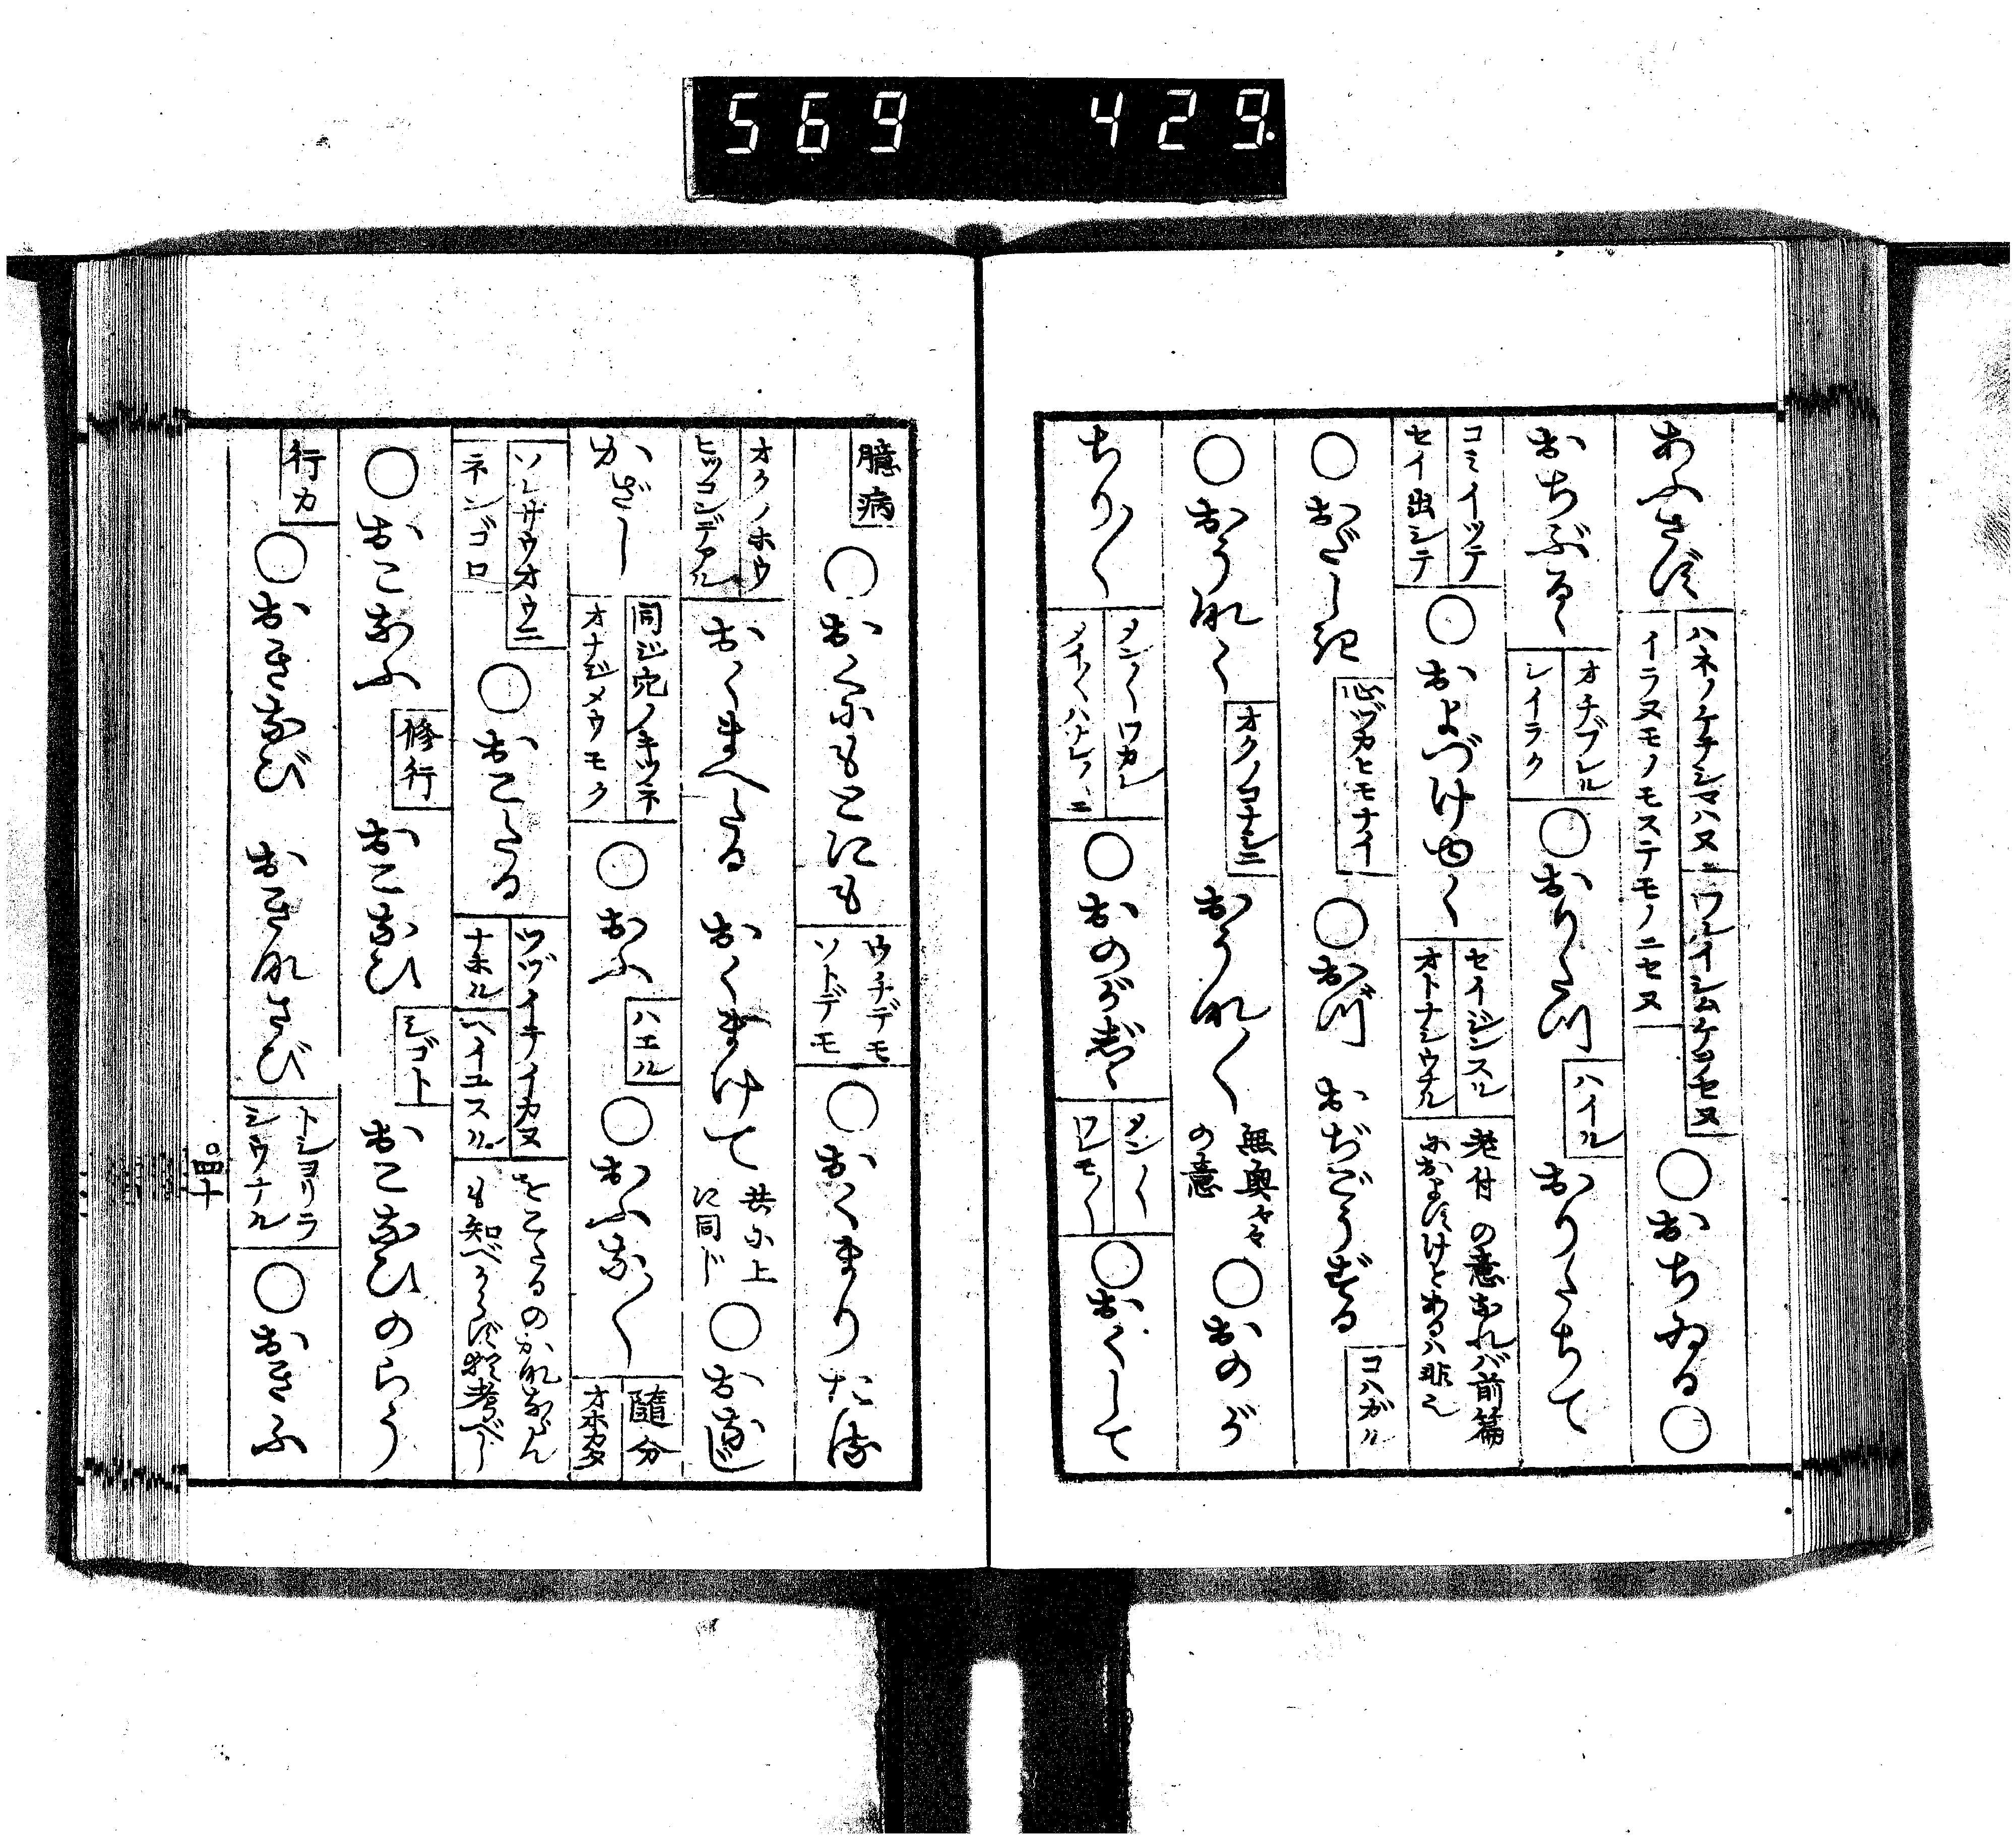 569 429.
あふさず
ハネノケテシマハヌ
イラヌモノモステモノニセヌ
ワルイシムケヲセヌ
○おちゐる○
おちぶるゝ
オチブレル
レイラク
○おりたつ
ハイル
おりたちて
コミイツテ
セイ出シテ
○およづけゆく
セイジンスル
オトナシウナル
老付の意なれバ前篇
におよすけとあるハ非也
○おだしき
心ヅカヒモナイ
○おづ おぢごうずる
コハガル
○おうなく
オクノコナシニ
おうな〱
無奥々々
の意
○おのが
ちり〱
タン〱ワカレ
メイ〱ハナレ〲ニ
○おのがぎゝ
タン〱
ワレモ〱
○おくして
臆病
○おくにもとにも
ウチデモ
ソトデモ
○おくまりたる
オクノホウ
ヒツコンデアル
おくまへたる おくまけて
共に上
に同じ
○おなじ
かざし
同ジ穴ノキツネ
オナジメウモク
○おふ
ハエル
○おふな〱
随分
オホカタ
ソレサウオウニ
ネンゴロ
○おこたる
ツヅイテイカヌ
ナホル
ヘイユスル
をこたるのかななめん
も知べからず猶考べし
○おこなふ
修行
おこなひ
シゴト
おこなひのらう
行力
○おきなび おきなさび
トシヨリラ
シウナル
○おきふ
四十